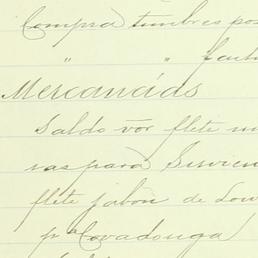 Compra timbres pos
" "
Mercancías
Saldo por flete
vas para
flete jabón de Lou
pa Covadonga